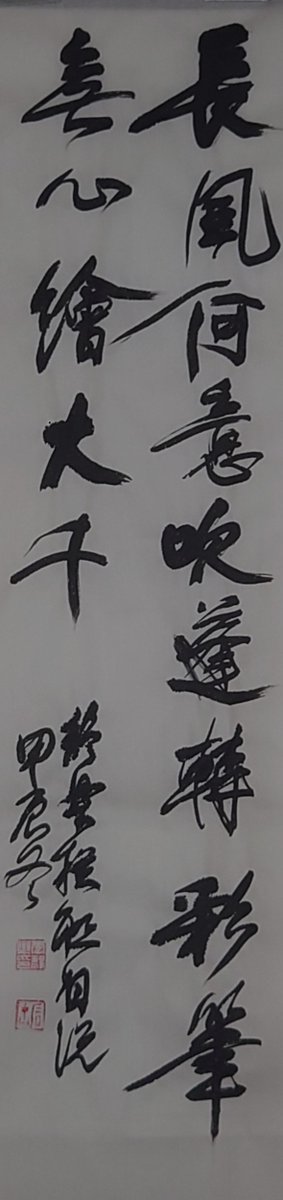 長風何意吹蓬轉彩筆
無心繪大千
甲辰冬